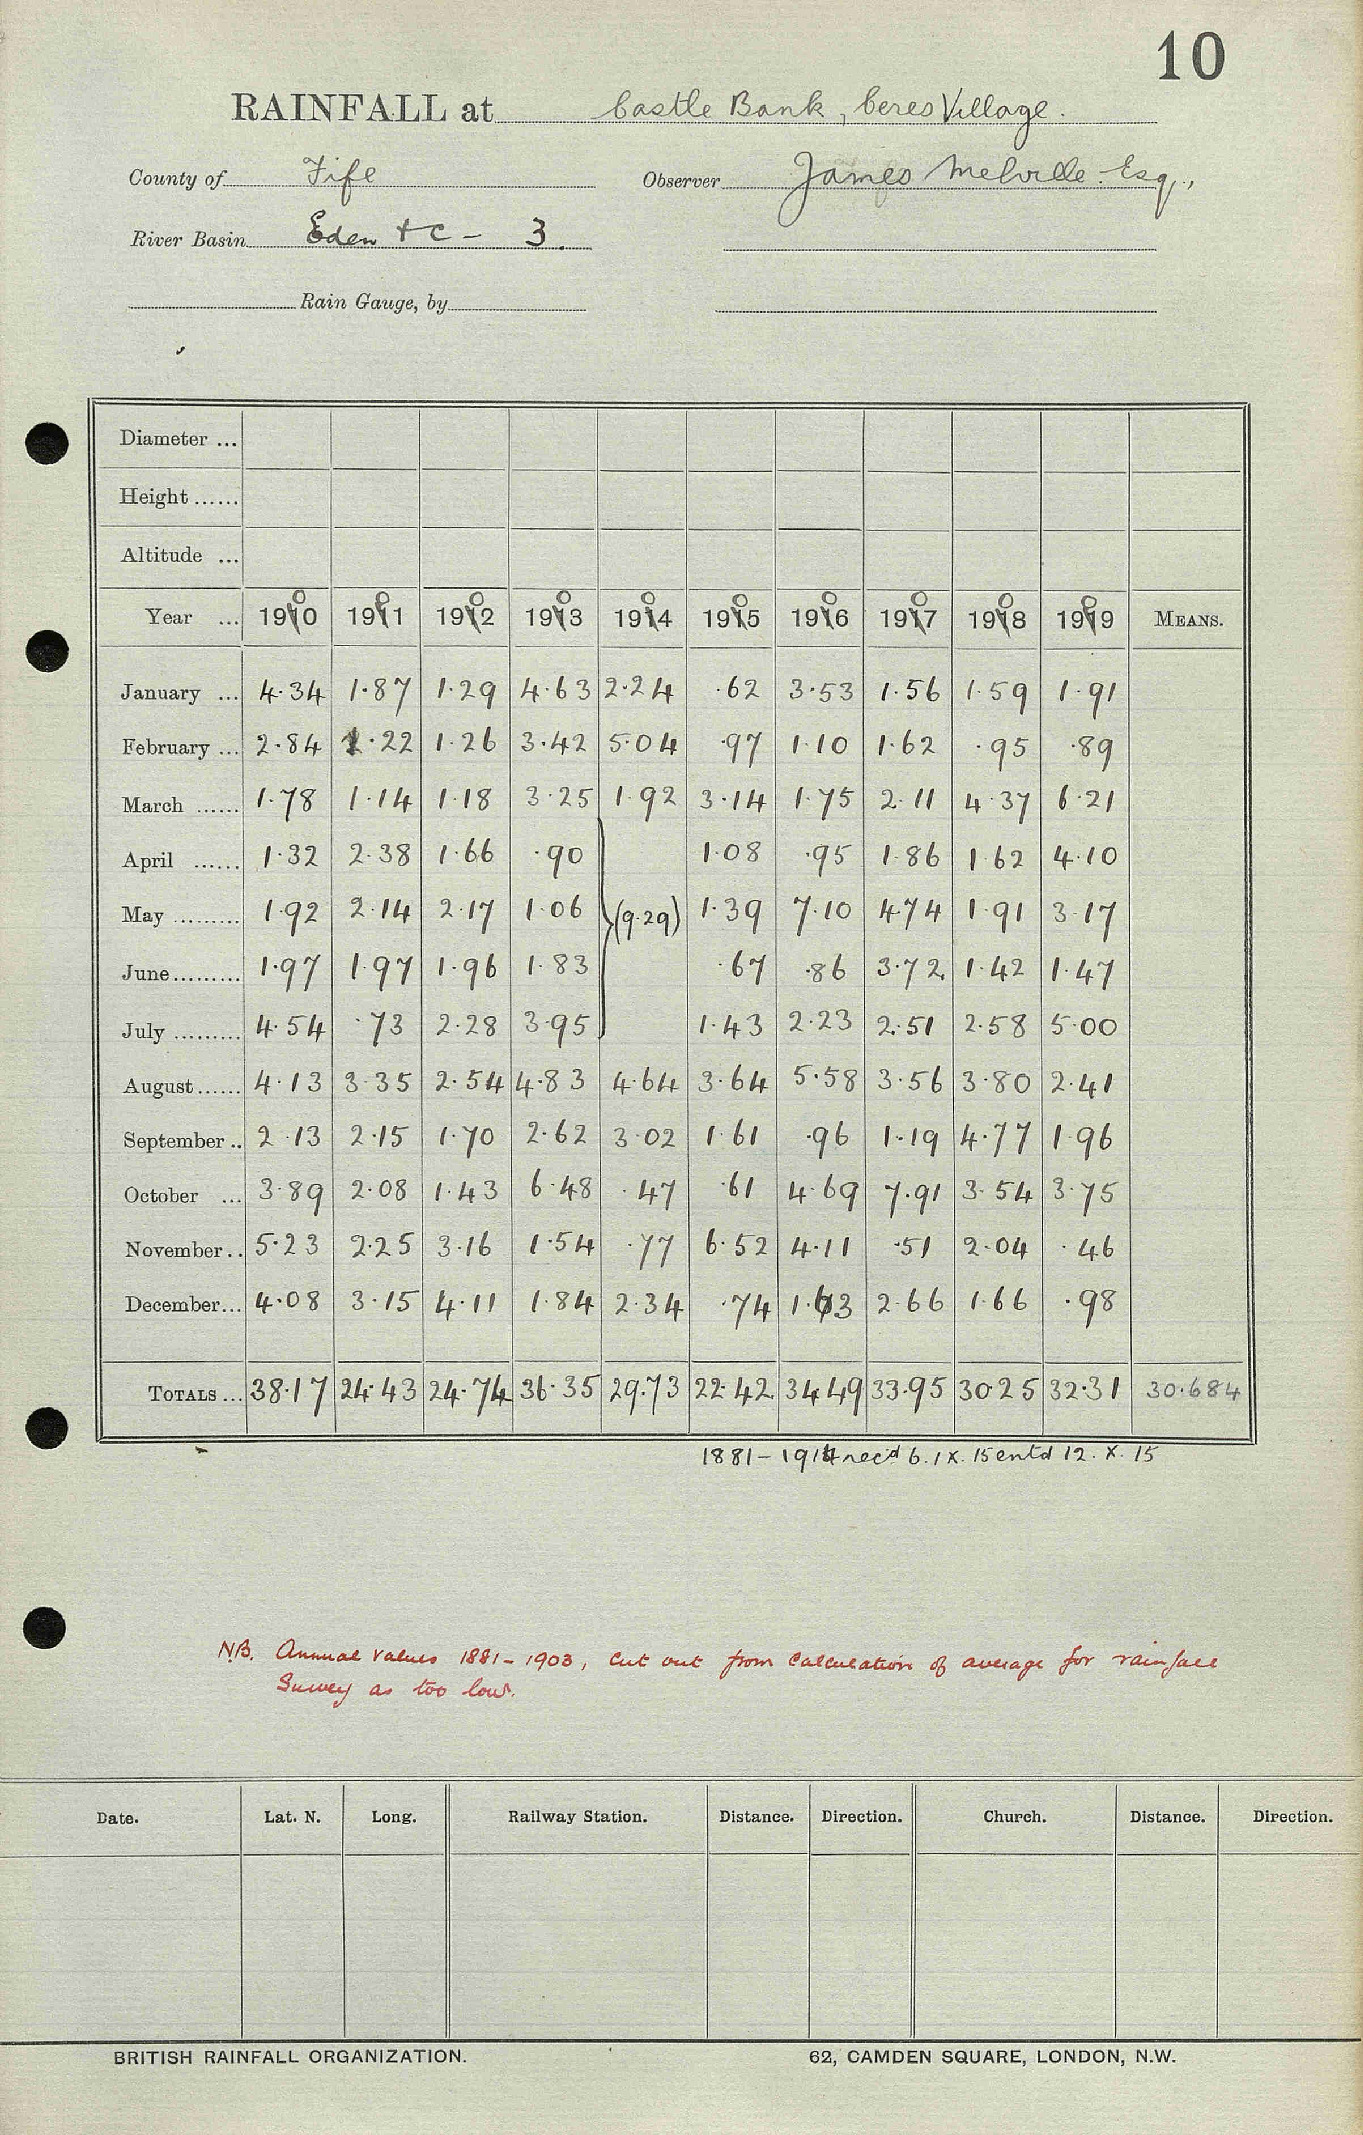 10
RAINFALL at Castle Bank, Ceres Village.
County of Fife Observer James Melville Esq.,
River Basin Eden + C - 3.
Rain Gauge, by
Diameter ...
Height ......
Altitude ...
Year ... 1900 1901 1902 1903 1904 1905 1906 1907 1908 1909 MEANS.
January ... 4.34 1.87 1.29 4.63 2.24 .62 3.53 1.56 1.59 1.91
February ... 2.84 1.22 1.26 3.42 5.04 .97 1.10 1.62 .95 .89
March ...... 1.78 1.14 1.18 3.25 1.92 3.14 1.75 2.11 4.37 6.21
April ...... 1.32 2.38 1.66 .90 1.08 .95 1.86 1.62 4.10
May ......... 1.92 2.14 2.17 1.06 (9.29) 1.39 7.10 4.74 1.91 3.17
June ......... 1.97 1.97 1.96 1.83 .67 .86 3.72 1.42 1.47
July ......... 4.54 .73 2.28 3.95 1.43 2.23 2.51 2.58 5.00
August ...... 4.13 3.35 2.54 4.83 4.64 3.64 5.58 3.56 3.80 2.41
September .. 2.13 2.15 1.70 2.62 3.02 1.61 .96 1.19 4.77 1.96
October ... 3.89 2.08 1.43 6.48 .47 .61 4.69 7.91 3.54 3.75
November .. 5.23 2.25 3.16 1.54 .77 6.52 4.11 .51 2.04 .46
December ... 4.08 3.15 4.11 1.84 2.34 .74 1.63 2.66 1.66 .98
TOTALS ... 38.17 24.43 24.74 36.35 29.73 22.42 34.49 33.95 30.25 32.31 30.684
1881 - 1914 recd 6.IX.15 entd 12.X.15
N.B. Annual values 1881 - 1903, cut out from calculation of average for rainfall
Survey as too low.
Date. Lat. N. Long. Railway Station. Distance. Direction. Church. Distance. Direction.
BRITISH RAINFALL ORGANIZATION. 62, CAMDEN SQUARE, LONDON, N.W.